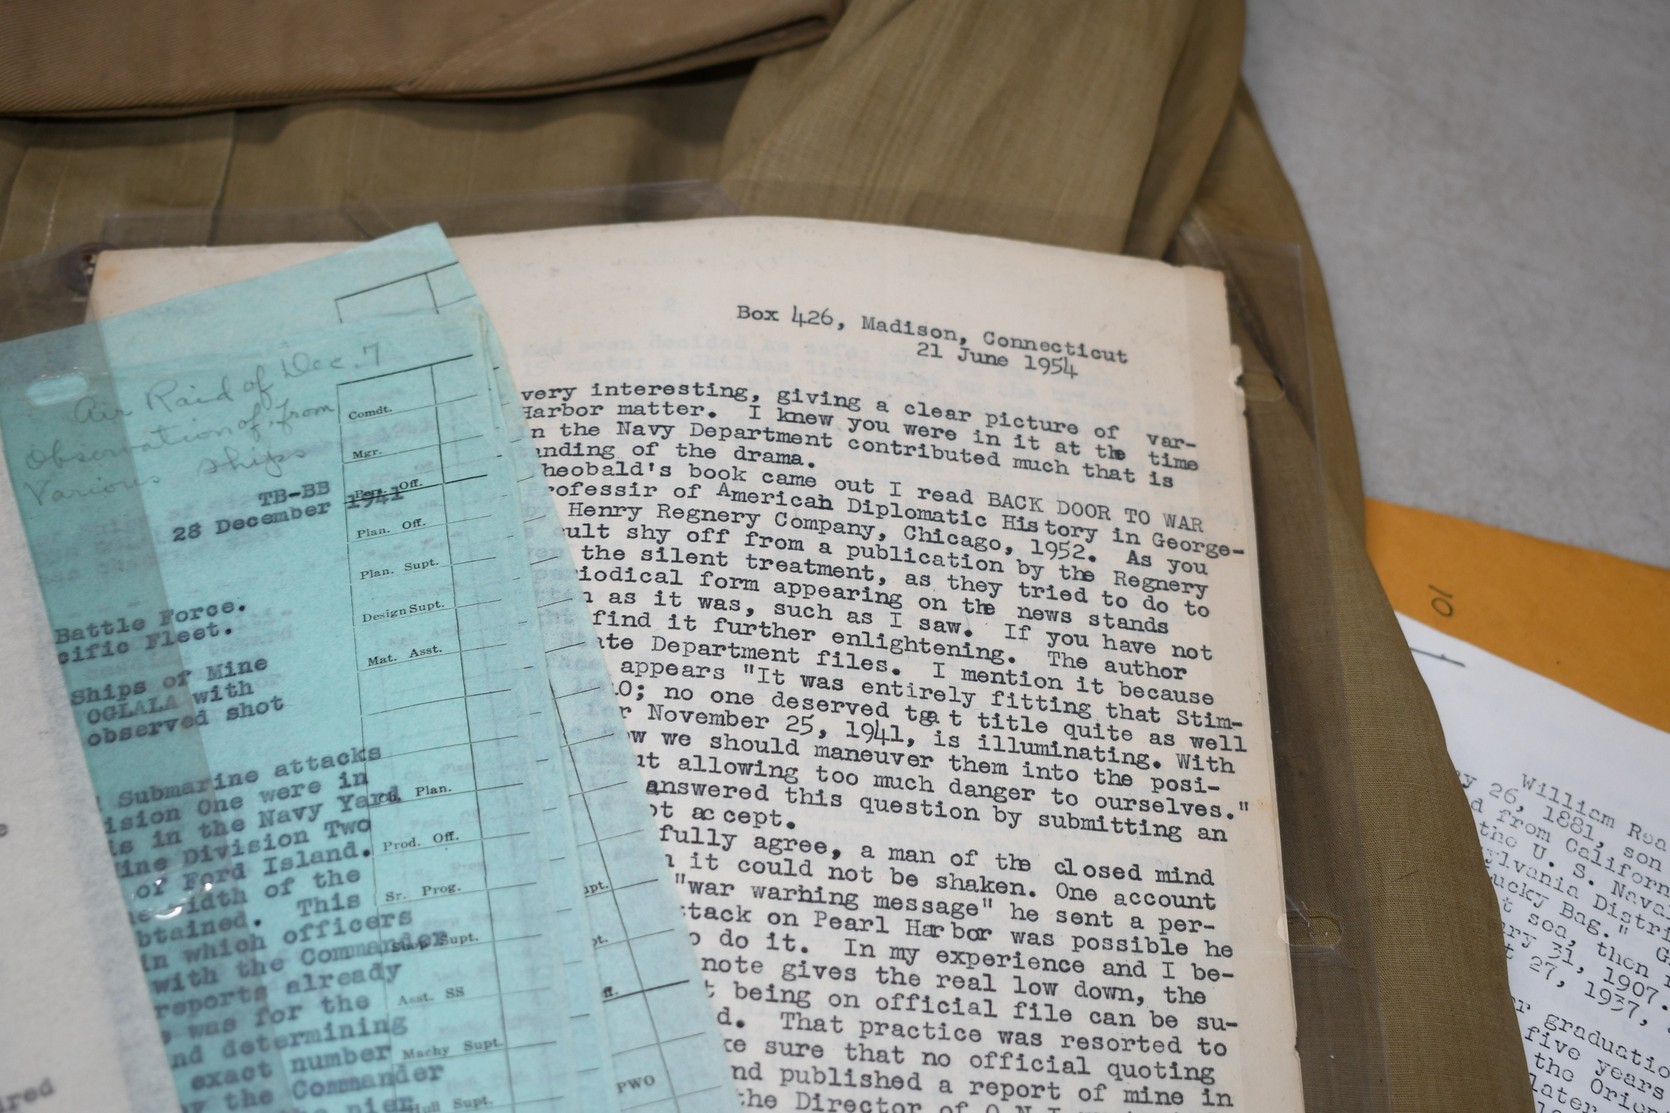 Box 426, Madison, Connecticut
21 June 1954
very interesting, giving a clear picture of var-
Harbor matter. I knew you were in it at the time
n the Navy Department contributed much that is
anding of the drama.
heobald's book came out I read BACK DOOR TO WAR
rofessir of American Diplomatic History in George-
Henry Regnery Company, Chicago, 1952. As you
cult shy off from a publication by the Regnery
the silent treatment, as they tried to do to
riodical form appearing on the news stands
n as it was, such as I saw. If you have not
find it further enlightening. The author
ate Department files. I mention it because
appears "It was entirely fitting that Stim-
0; no one deserved that title quite as well
r November 25, 1941, is illuminating. With
ow we should maneuver them into the posi-
ut allowing too much danger to ourselves."
answered this question by submitting an
ot accept.
fully agree, a man of the closed mind
n it could not be shaken. One account
"war warning message" he sent a per-
ttack on Pearl Harbor was possible he
o do it. In my experience and I be-
note gives the real low down, the
t being on official file can be su-
d. That practice was resorted to
ke sure that no official quoting
nd published a report of mine in
the Director of O.N.I.
Air Raid of Dec. 7
Observation of, from
Various ships
TB-BB
28 December 1941
Battle Force.
cific Fleet.
Ships of Mine
OGLALA with
observed shot
Submarine attacks
ision One were in
is in the Navy Yard
ine Division Two
of Ford Island.
width of the
btained. This
in which officers
with the Commander
reports already
was for the
nd determining
exact number
by the Commander
the pier
Comdt.
Mgr.
Per. Off.
Plan. Off.
Plan. Supt.
Design Supt.
Mat. Asst.
Plan.
Prod. Off.
Sr. Prog.
Shop Supt.
Asst. SS
Machy Supt.
Hull Supt.
upt.
pt.
ff.
PWO
ared
10
William Rea
y 26, 1881, son
d from Californ
the U. S. Nava
ylvania Distri
ucky Bag." G
t sea, then r
ry 31, 1907.
t 27, 1937,
r graduatio
five years
the Orio
later